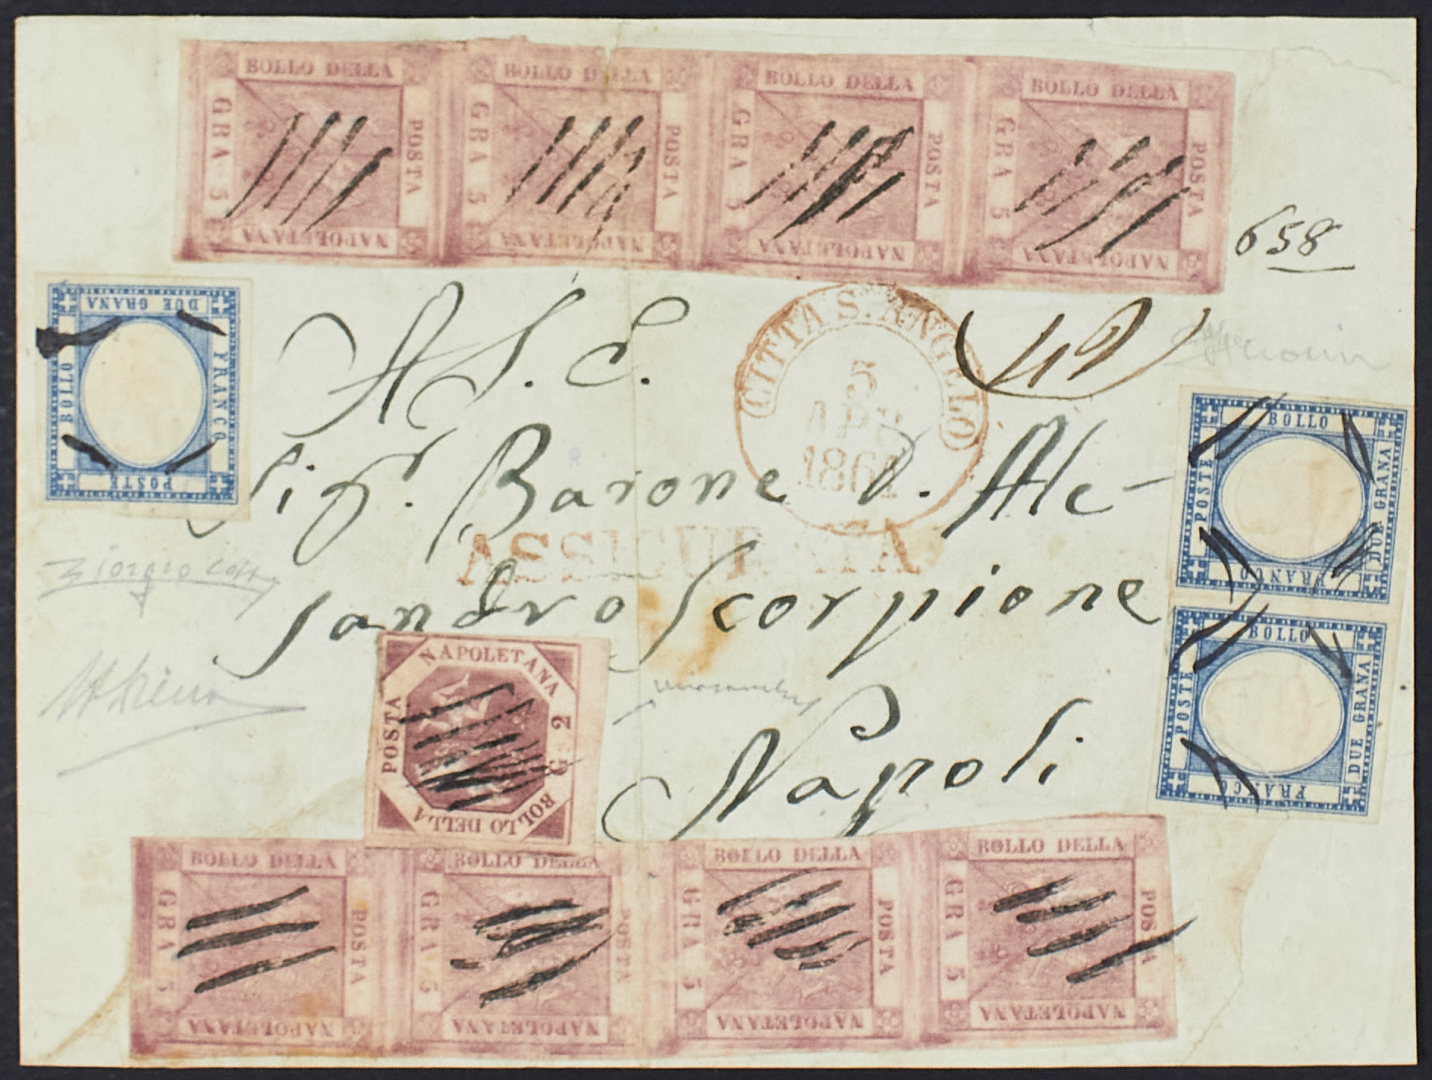 BOLLO DELLA POSTA NAPOLETANA GRA 5
BOLLO DELLA POSTA NAPOLETANA GRA 5
BOLLO DELLA POSTA NAPOLETANA GRA 5
BOLLO DELLA POSTA NAPOLETANA GRA 5
658
FRANCO BOLLO POSTE DUE GRANA
CITTA S. ANGELO
5
APR
1861
A S. E.
Sigr. Barone D. Ale-
ASSICURATA
sandro Scorpione
Napoli
FRANCO BOLLO POSTE DUE GRANA
FRANCO BOLLO POSTE DUE GRANA
BOLLO DELLA POSTA NAPOLETANA G 2
BOLLO DELLA POSTA NAPOLETANA GRA 5
BOLLO DELLA POSTA NAPOLETANA GRA 5
BOLLO DELLA POSTA NAPOLETANA GRA 5
BOLLO DELLA POSTA NAPOLETANA GRA 5